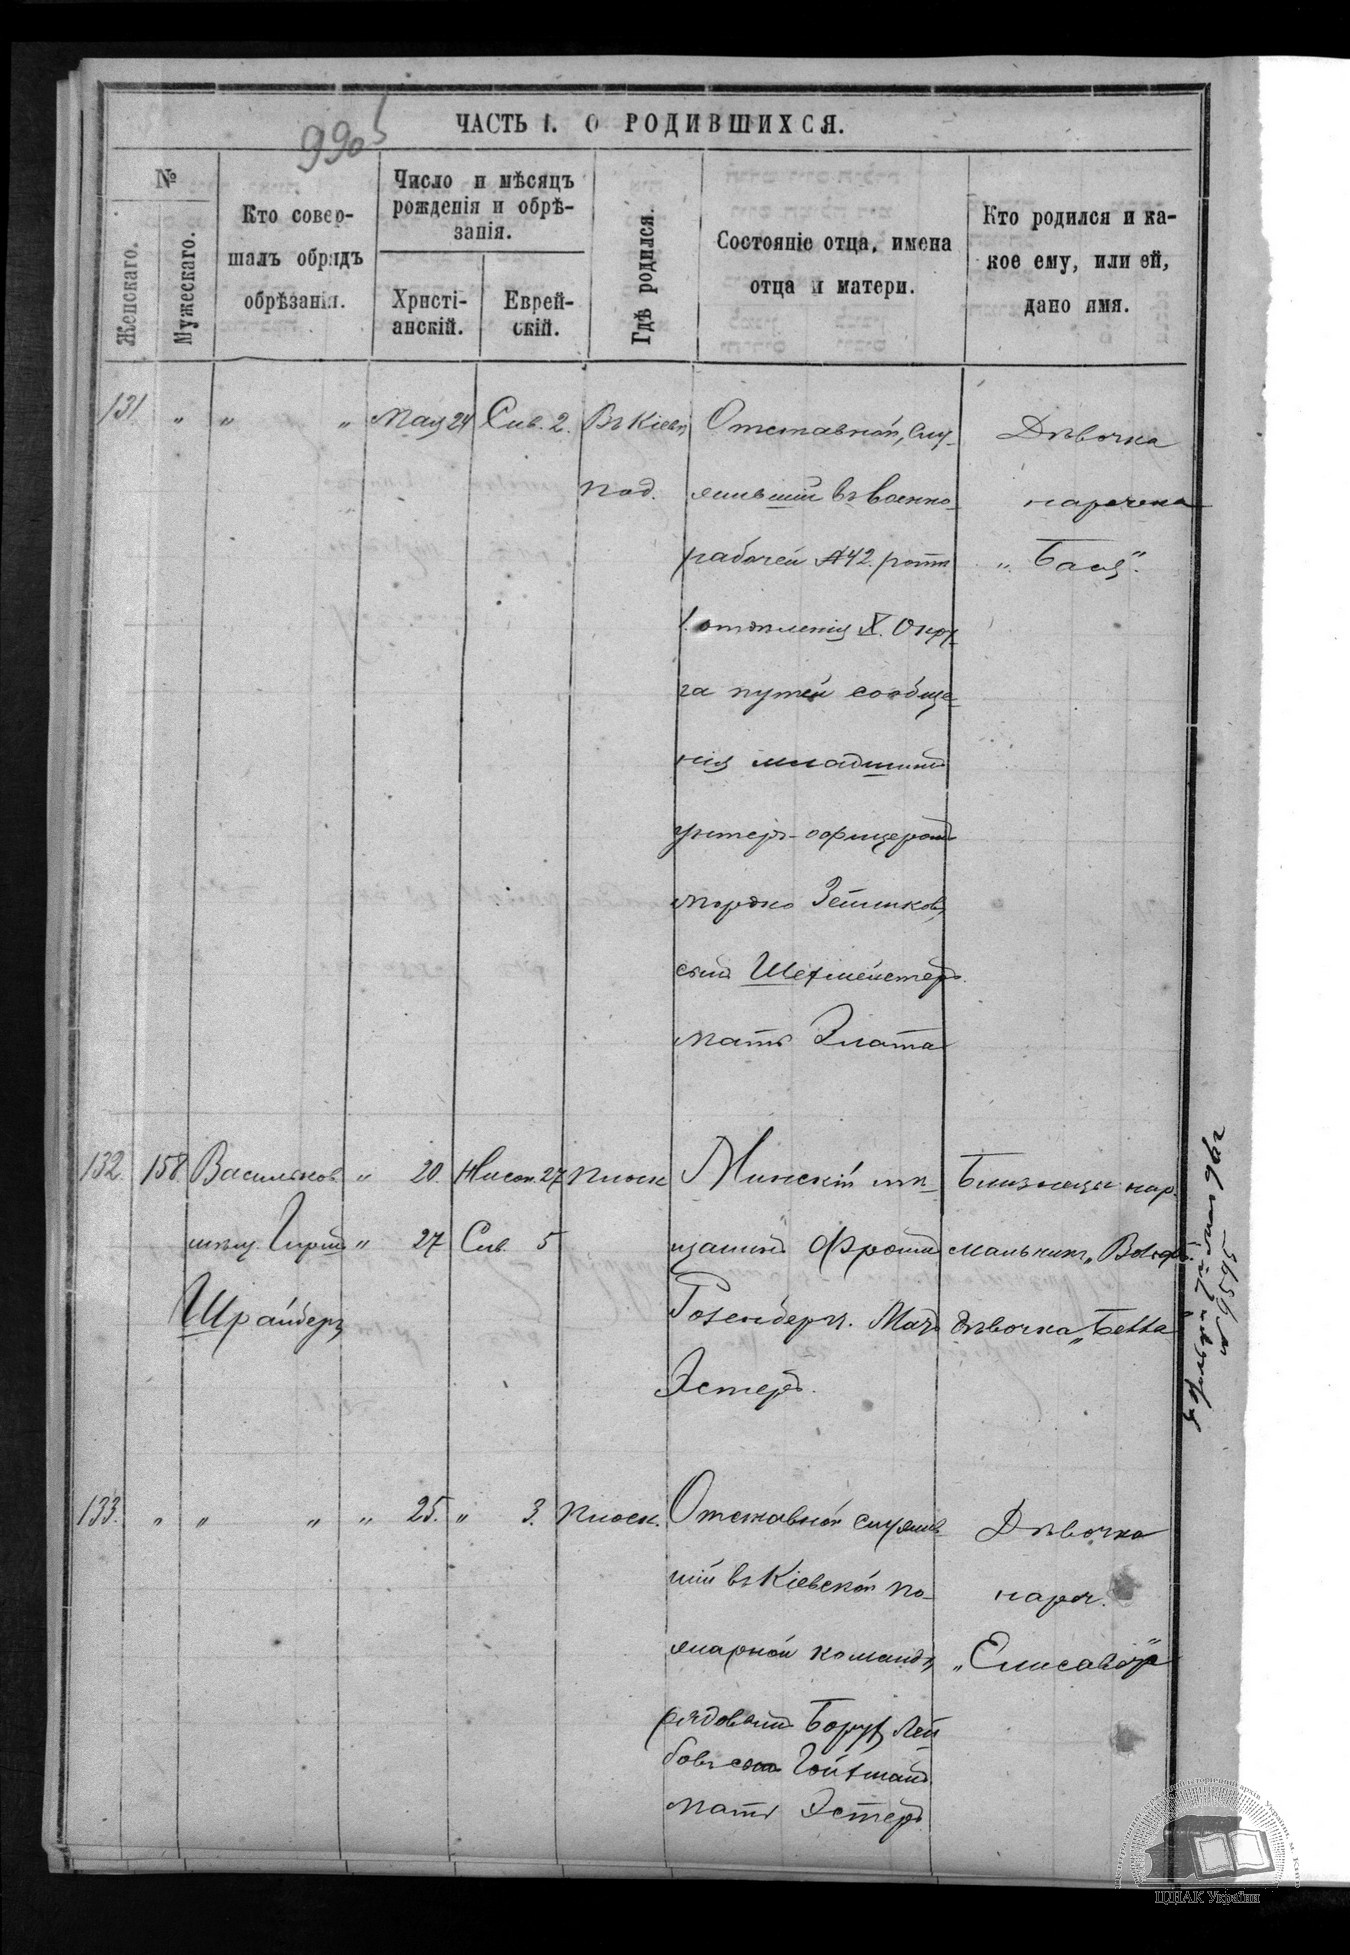 ЧАСТЬ I. О РОДИВШИХСЯ.
990
№
Женскаго.
Мужескаго.
Кто совер-
шалъ обрядъ
обрѣзанія.
Число и мѣсяцъ
рожденія и обрѣ-
занія.
Христі-
анскій.
Еврей-
скій.
Гдѣ родился.
Состояніе отца, имена
отца и матери.
Кто родился и ка-
кое ему, или ей,
дано имя.
131 " " " Мая 24 Сив. 2. Въ Кіевѣ
под.
Отставной, слу-
жившій въ военно-
рабочей №42. ротѣ
1. отдѣленія X. Окру-
га путей сообще-
нія младшимъ
унтеръ-офицеромъ
Мордко
сынъ Шехмейстеръ
мать Злата
Дѣвочка
наречена
„Бася".
132. 158. Васильков. " 20. Нисон. 27 Плоск.
мѣщ. Гершъ " 27 Сив. 5
Шрайберъ
Минскій мѣ-
щанинъ Фроимъ
Розенбергъ. Мать
Эстеръ.
Близнецы нар.
мальчикъ „Вольфъ".
дѣвочка „Бейла"
133. " " " " 25. " 3. Плоск.
Отставной служив-
шій въ Кіевской по-
жарной командѣ
рядовымъ Борухъ Лей-
бовъ сынъ Гойхманъ
мать Эстеръ
Дѣвочка
нареч.
„Елисавета"
№ 5695
ЦДІАК України